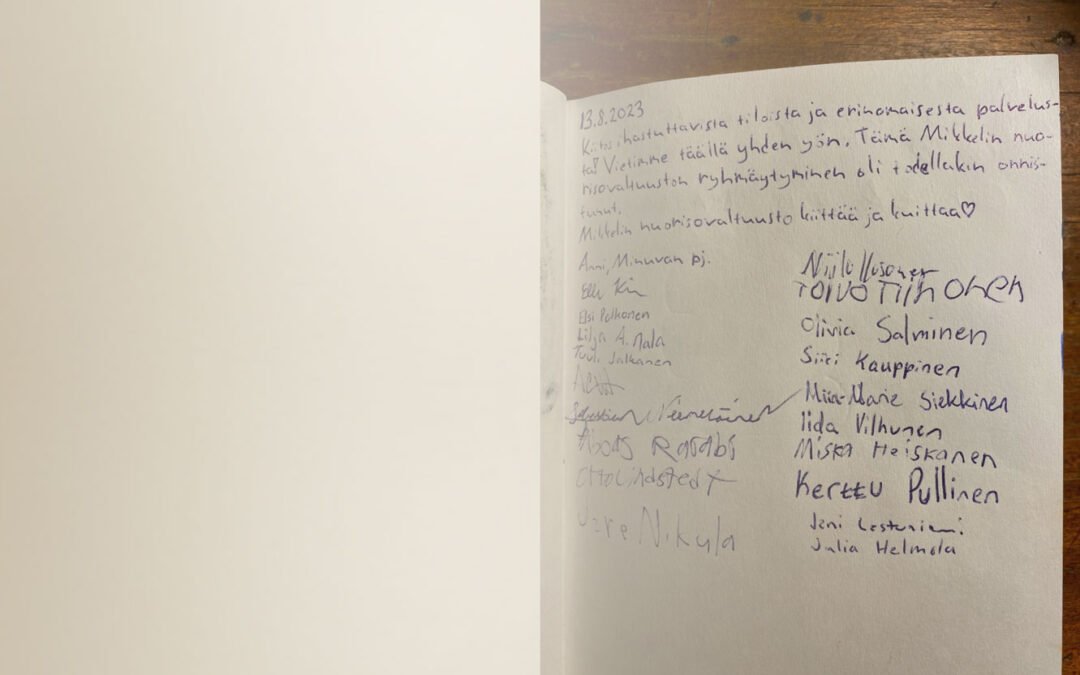 13.8.2023
Kiitos ihastuttavista tiloista ja erinomaisesta palvelus-
ta! Vietimme täällä yhden yön. Tämä Mikkelin nuo-
risovaltuuston ryhmäytyminen oli todellakin onnis-
tunut.
Mikkelin nuorisovaltuusto kiittää ja kuittaa♡
Anni, Minuvan pj.
Elli
Elsi Pelkonen
Lilja A.
Tuuli Jalkanen
Sebastian
Rajabi
Otto Lindstedt
Nikula
Niilo
TOIVO TIIHONEN
Olivia Salminen
Siiri Kauppinen
Miia-Marie Siekkinen
Iida Vilhunen
Miska Heiskanen
Kerttu Pullinen
Jeni
Julia Helmola